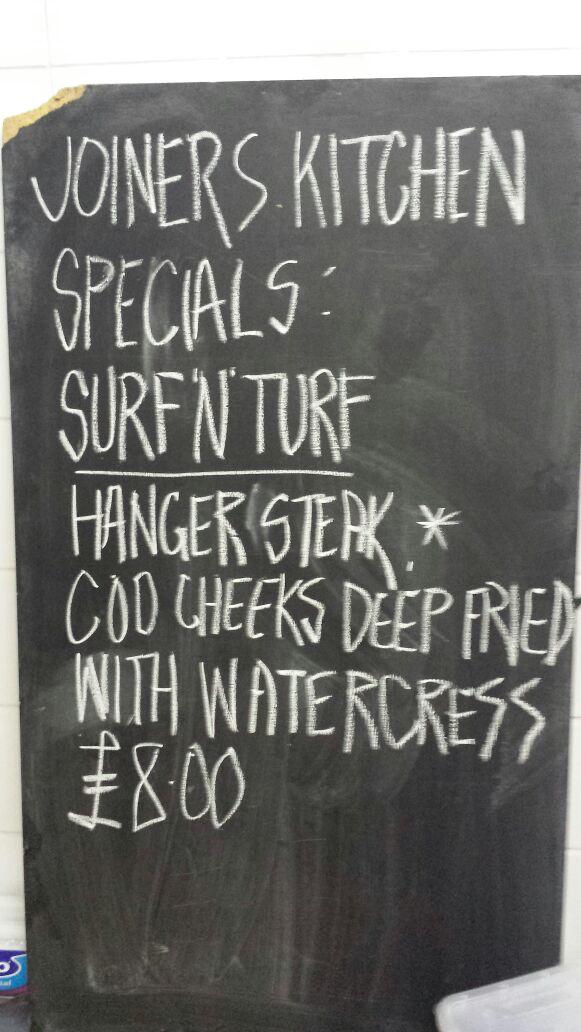 JOINERS KITCHEN
SPECIALS:
SURF 'N' TURF
HANGER STEAK. *
COD CHEEKS DEEP FRIED
WITH WATERCRESS
£8.00